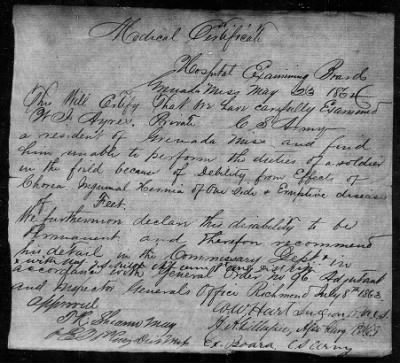 Medical Certificate
Hospital Examining Board
Grenada Miss, May 23 1864
This Will Certify That We have carefully Examined
Private C S Army
a resident of Grenada Miss and find
him unable to perform the duties of a soldier
in the field because of Debility from Effects of
Chorea Inguinal Hernia of One Side & Eruptive disease
of Feet.
We furthermore declare this disability to be
permanent and therefore recommend
his detail in the Commissary Dept in
accordance with General Order No 96 Adjutant
and Inspector Generals Office Richmond July 8th 1863
Approved
Ex Board CS Army